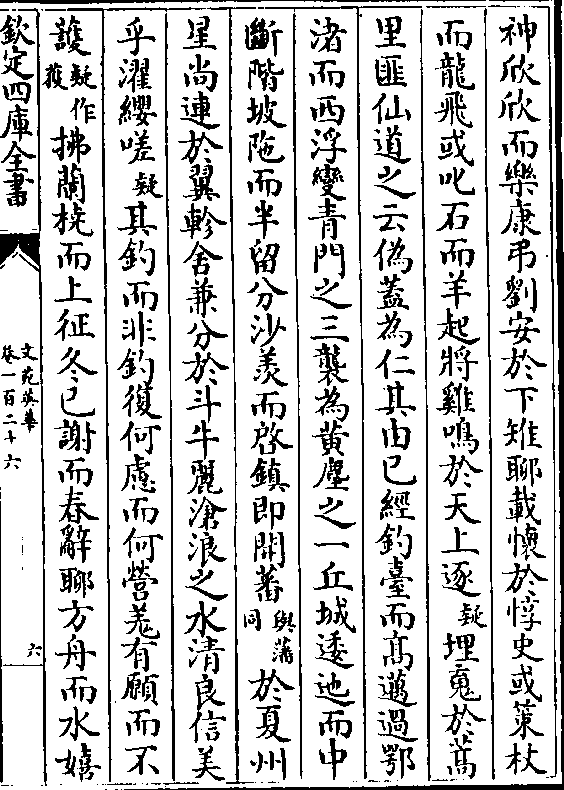 神欣欣而樂康弔劉安於下雉聊載懷於惇史或策杖
而龍飛或叱石而羊起將雞鳴於天上逐疑埋䰟於蒿
里匪仙道之云偽蓋為仁其由已經釣臺而高邁過鄂
渚而西浮變青門之三襲為黄塵之一丘城逶迆而中
斷階坡陁而半留分沙羨而啓鎮即開蕃與藩同於夏州
星尚連於翼軫舍兼分於斗牛麗滄浪之水清良信美
乎濯纓嗟疑其釣而非釣復何慮而何營羌有願而不
䕶疑作獲拂蘭橈而上征冬已謝而春辭聊方舟而水嬉
欽定四庫全書
文苑英華
卷一百二十六
六